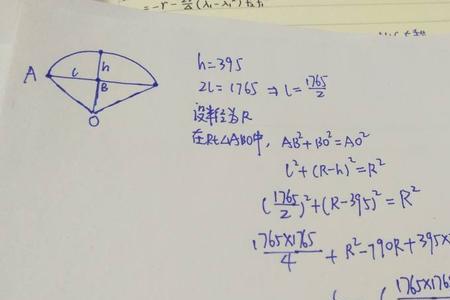 A
l
h
B
O
h=395
2l=1765 ⇒ l=1765/2
设半径为R
在Rt△ABO中, AB²+BO²=AO²
l²+(R-h)²=R²
(1765/2)²+(R-395)²=R²
1765×1765/4 + R²-790R+395×